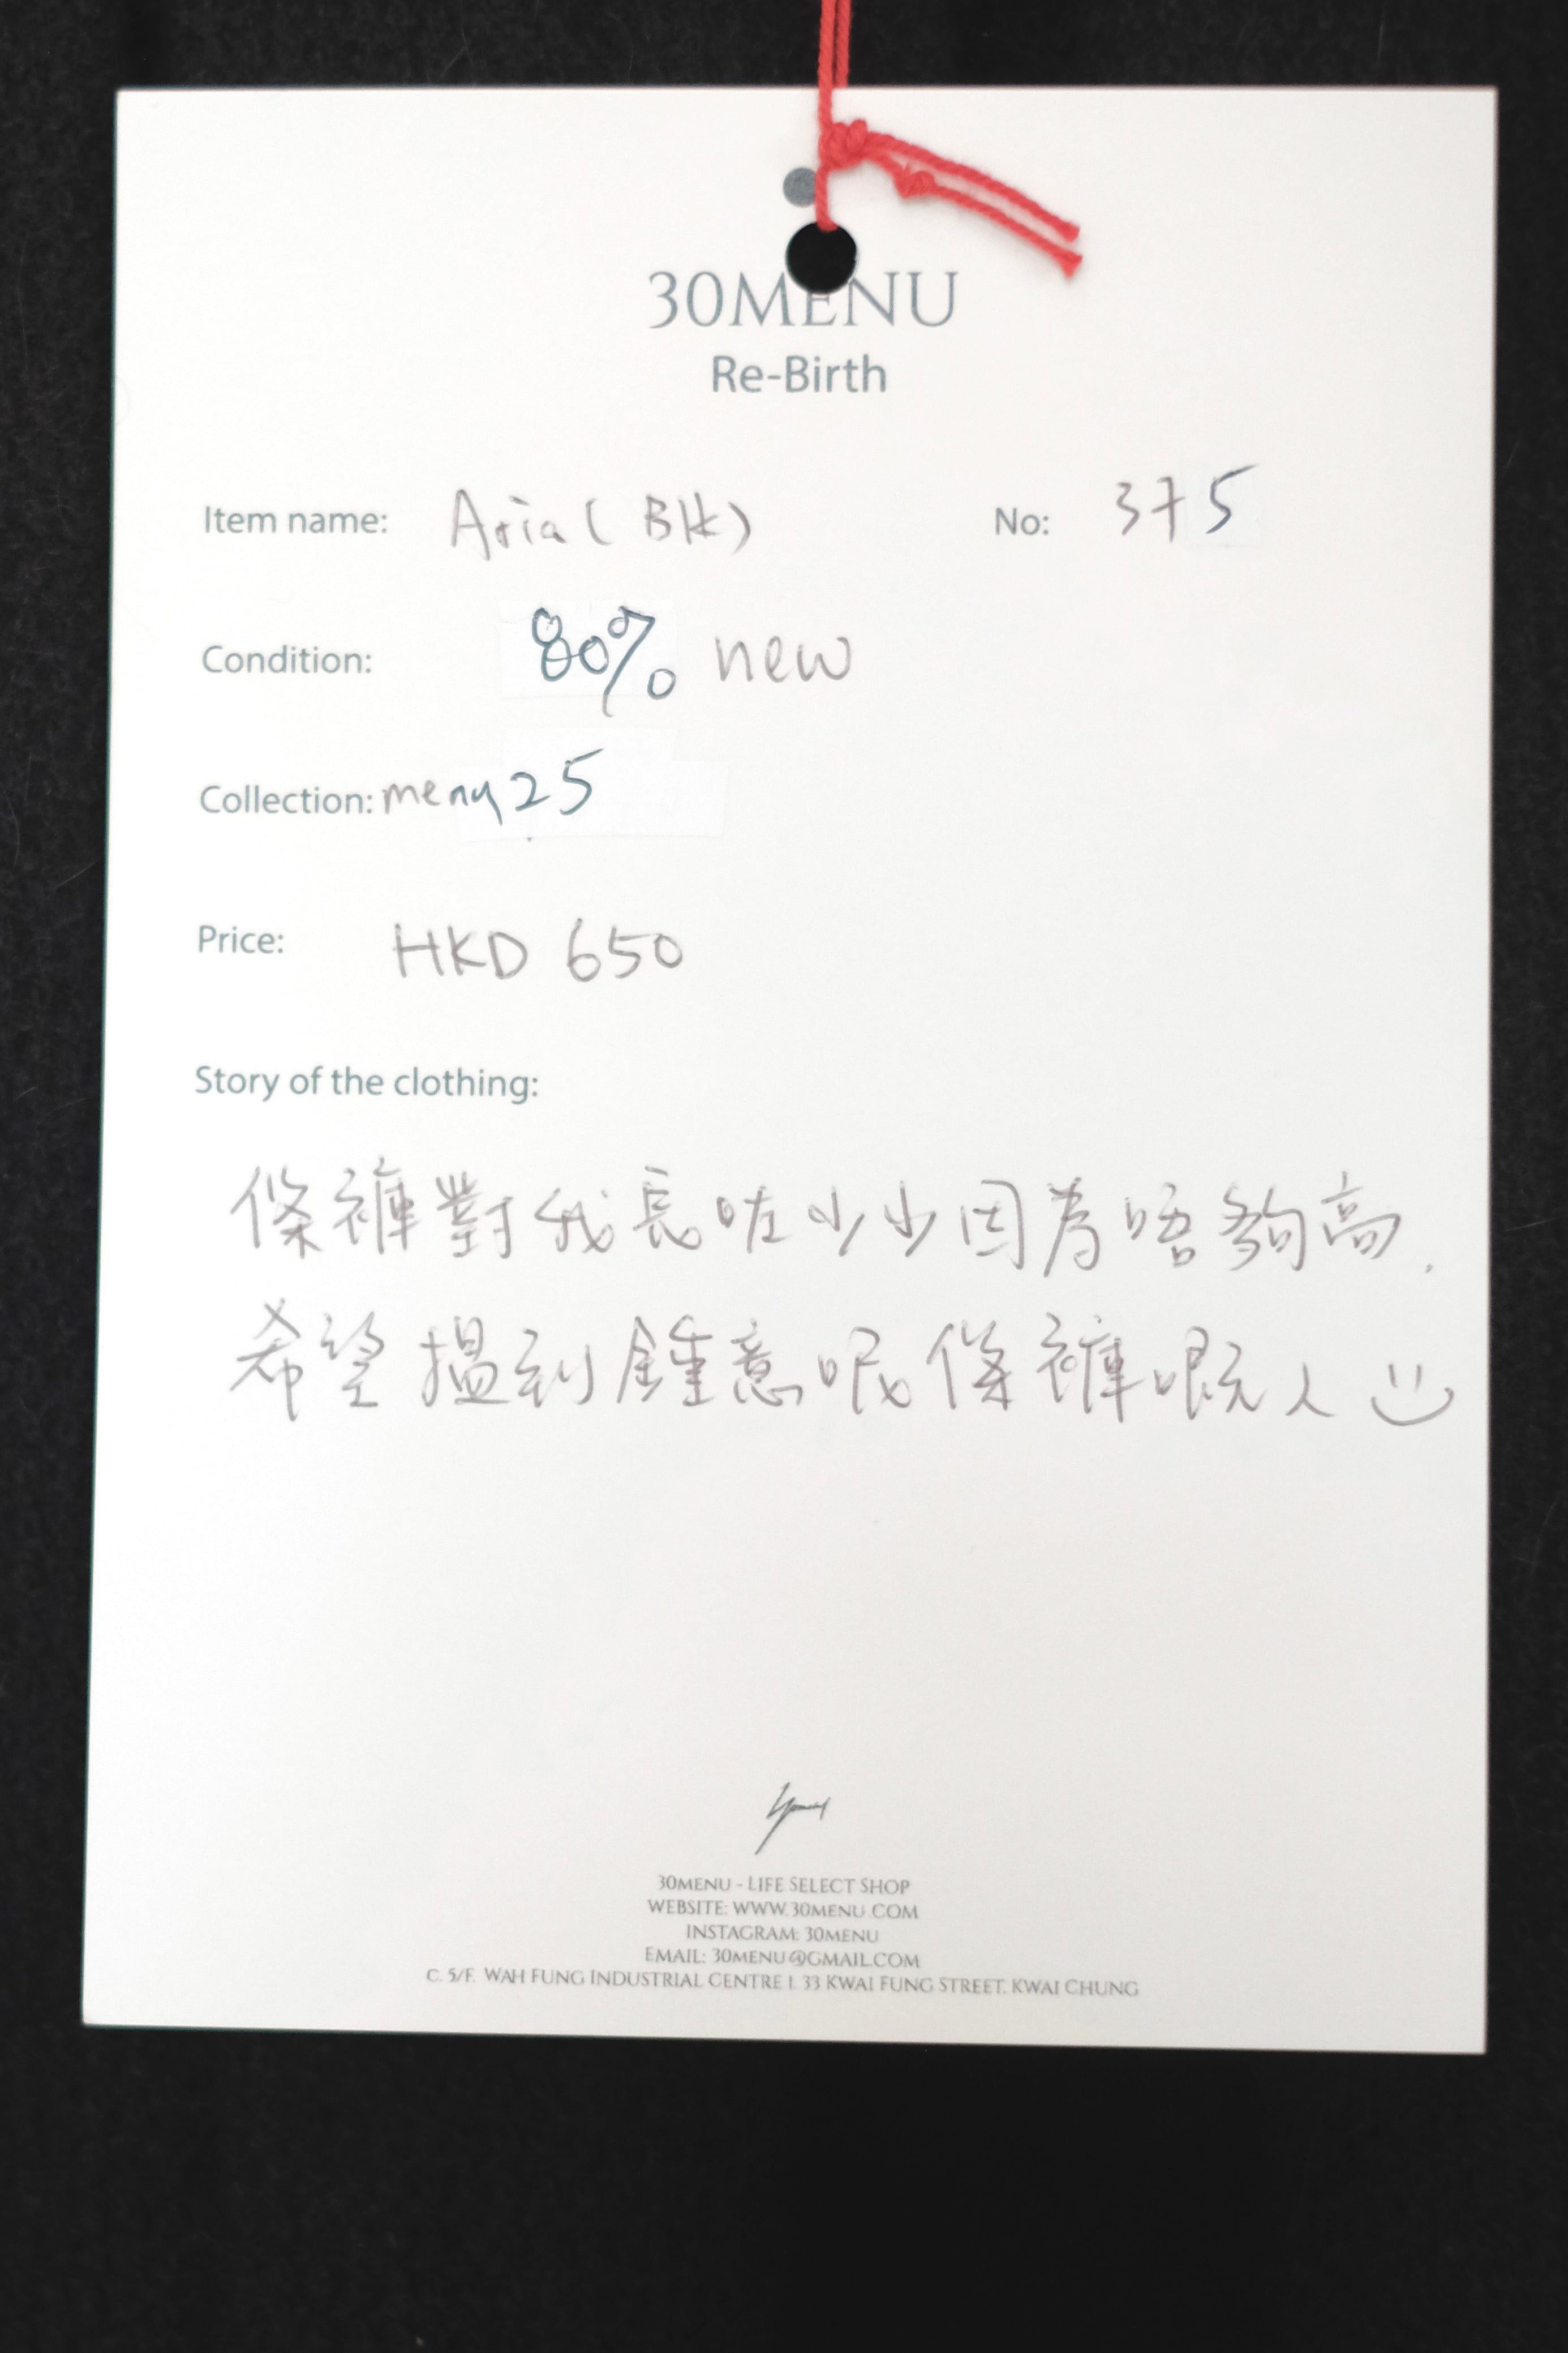 30MENU
Re-Birth
Item name: Aria (Blk) No: 375
Condition: 80% new
Collection: menu 25
Price: HKD 650
Story of the clothing:
條褲對我長咗少少因為唔夠高.
希望搵到鍾意呢條褲嘅人
30MENU - LIFE SELECT SHOP
WEBSITE: WWW.30MENU.COM
INSTAGRAM: 30MENU
EMAIL: 30MENU@GMAIL.COM
C. 5/F. WAH FUNG INDUSTRIAL CENTRE I. 33 KWAI FUNG STREET. KWAI CHUNG